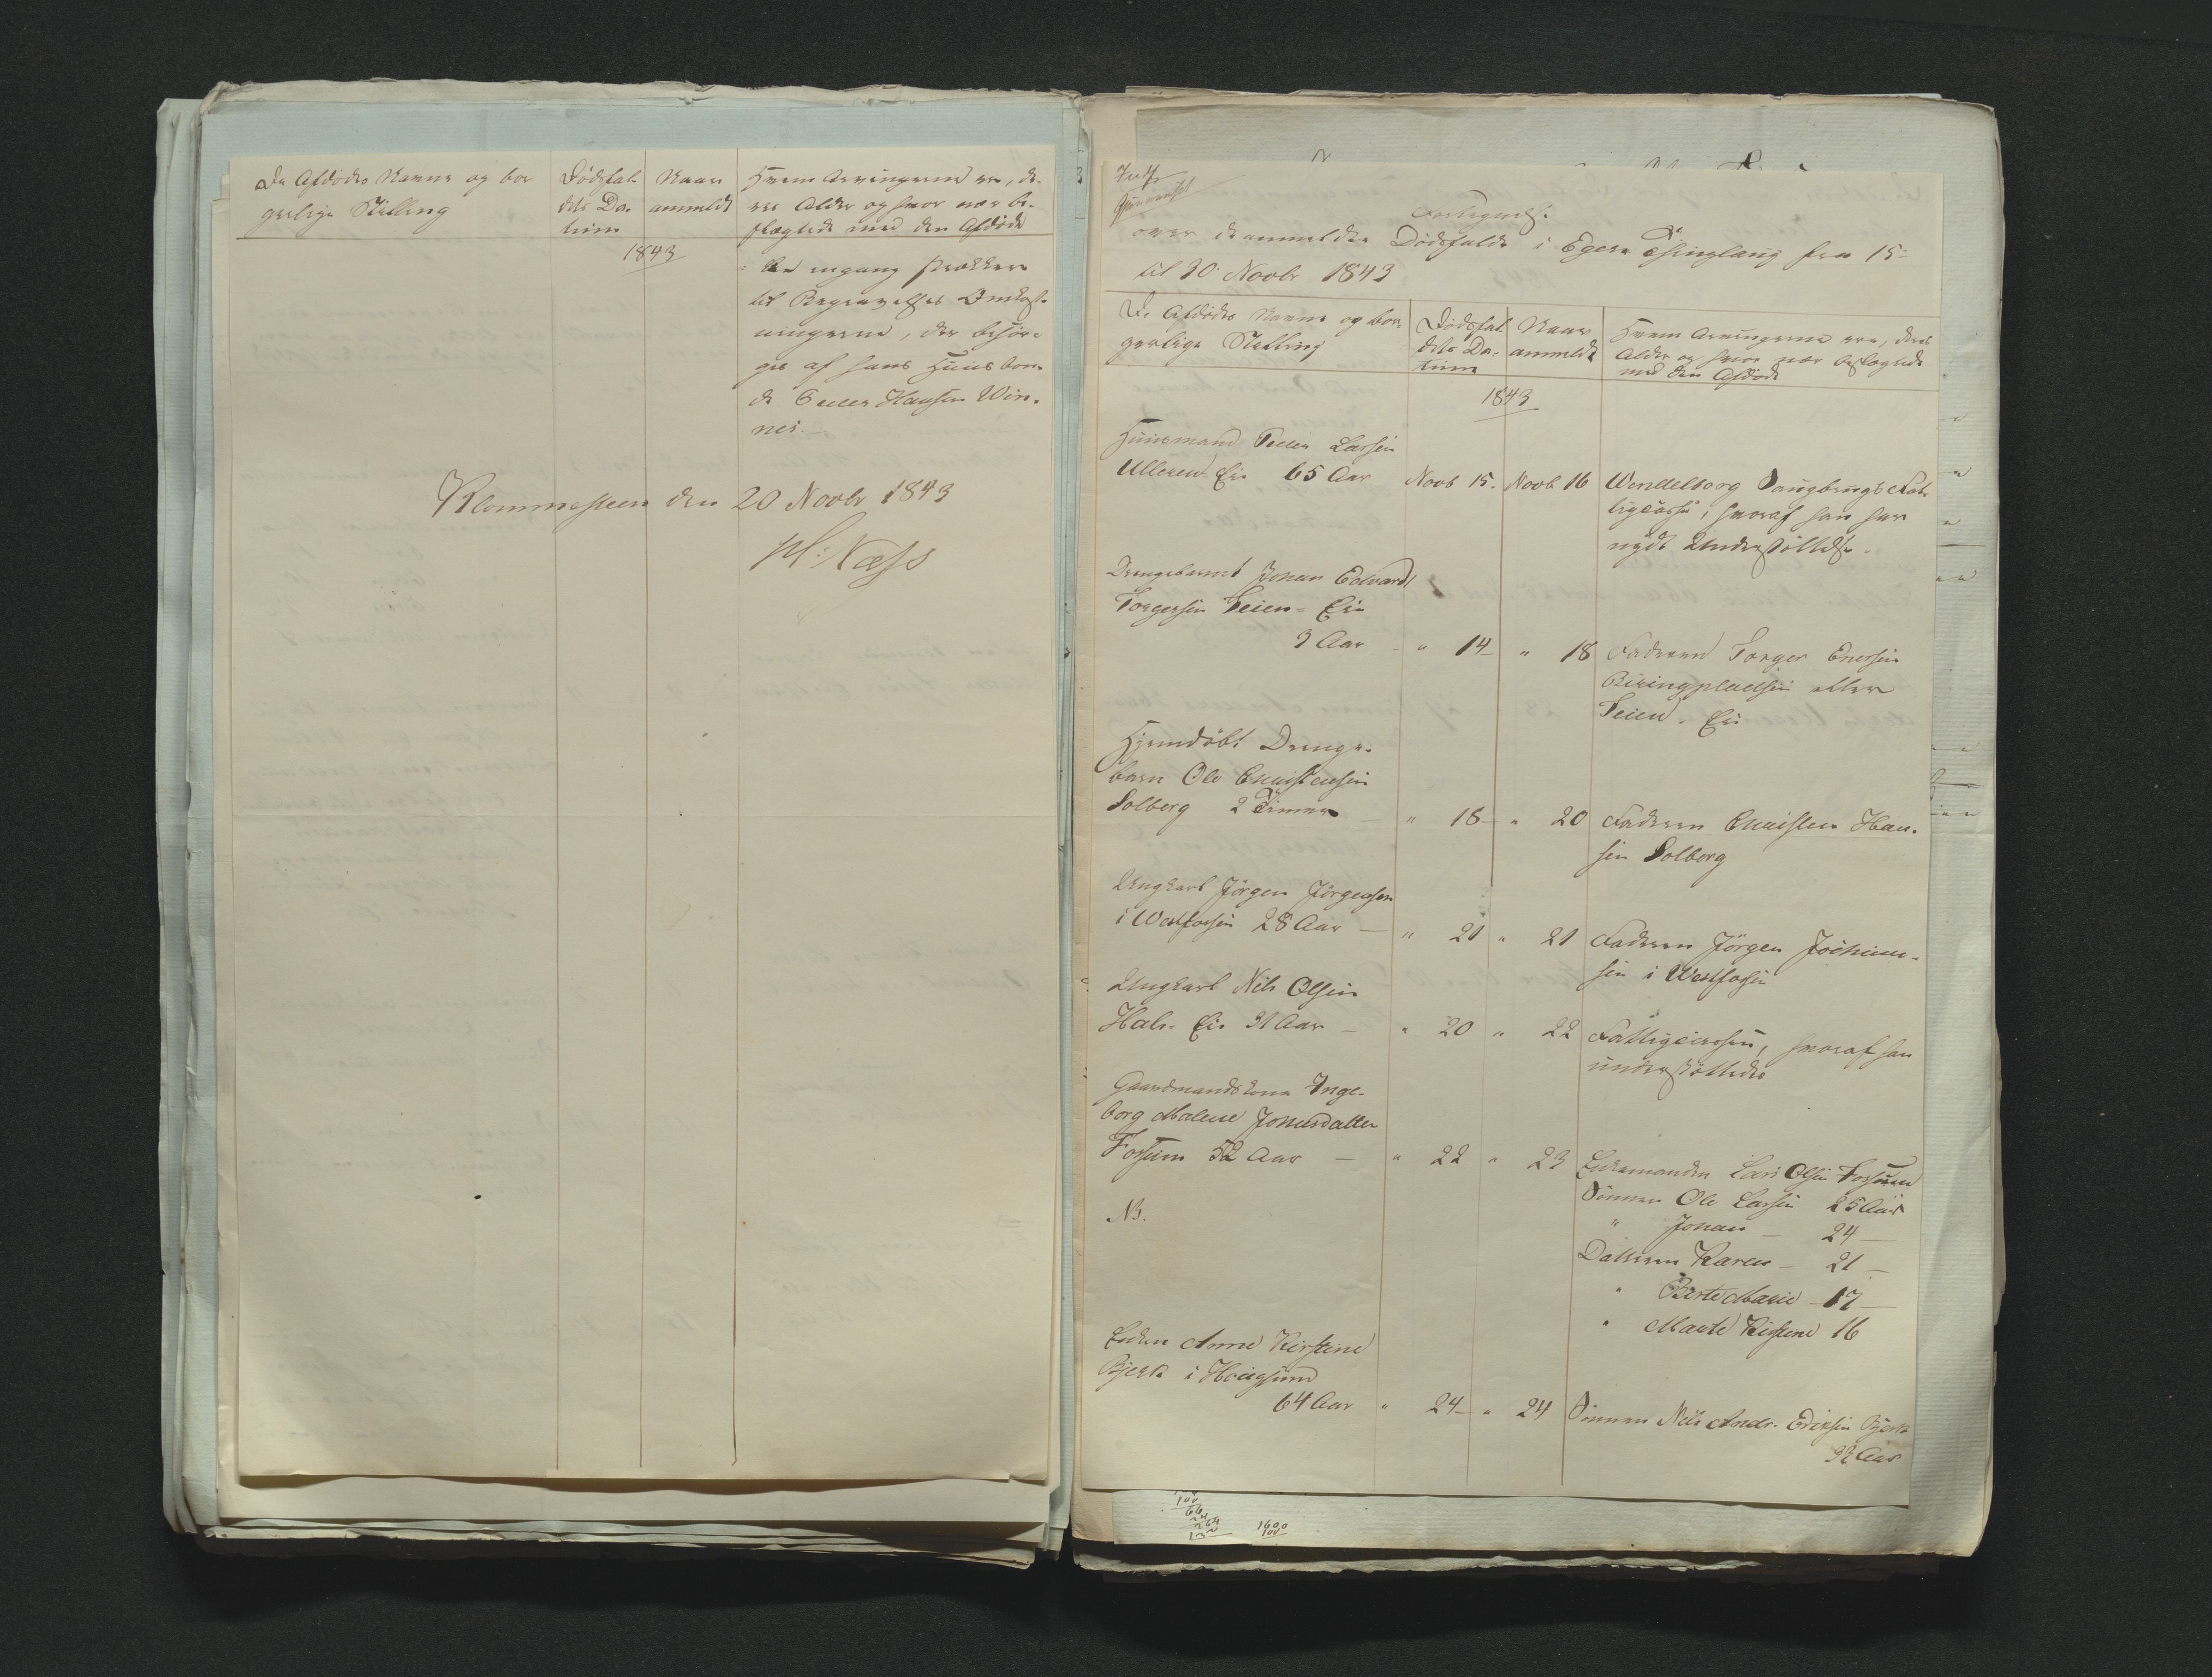 De Afdødes Navne og bor
gerlige Stilling
Dødsfal-
dets Da-
tum
Naar
anmeldt
Hvem Arvingerne ere, de-
res Alder og hvor nær be-
slægtede med den Afdøde
1843
en engang strækker
til Begravelses Omkost-
ningerne, der besør-
ges af hans Huusbon-
de Peder Hansen Win-
nes.
Klommesteen den 20 Novbr 1843
Næss
Fortegnelse
over de anmeldte Dødsfald i Egers Thinglaug fra 15
til 30 Novbr 1843
De Afdødes Navne og bor
gerlige Stilling
Dødsfal-
dets Da-
tum
Naar
anmeldt
Hvem Arvingerne ere, deres
Alder og hvor nær beslægtede
med den Afdøde
1843
Huusmand Peder Larsen
Ulleren Eie 65 Aar Novb 15. Novb 16 Wendelborg Saugbrugs Fat-
tigcasse, hvoraf han har
nydt Understøttelse.
Drengebarnet Johan Edvard
Torgersen Teien Eie
3 Aar - " 14 - " 18 Faderen Torger Enersen
pladsen eller
Teien Eie
Hjemdøbt Drenge-
barn Ole Christensen
Solberg 2 Timer - " 18 - " 20 Faderen Christen Han-
sen Solberg
Ungkarl Jørgen Jørgensen
i Westfossen 28 Aar - " 21 " 21 Faderen Jørgen Jochum-
sen i Westfossen
Ungkarl Nils Olsen
Hals Eie 31 Aar - " 20 " 22 Fattigcassen, hvoraf han
understøttedes
Gaardmandskone Inge-
borg Malene Jonasdatter
Fossum 52 Aar - " 22 " 23 Enkemanden Lars Olsen Fossum
NB.
Sønnen Ole Larsen 25 Aar
" Johan - 24 -
Datteren Karen - 21 -
" Berte Marie - 17 -
" Marte Kirstine 16
Enken Anne Kirstine
Bjerk i Hougsund
64 Aar " 24 - " 24 Sønnen Nils Andr. Eriksen Bjerk
32 Aar
100
66
1600
100